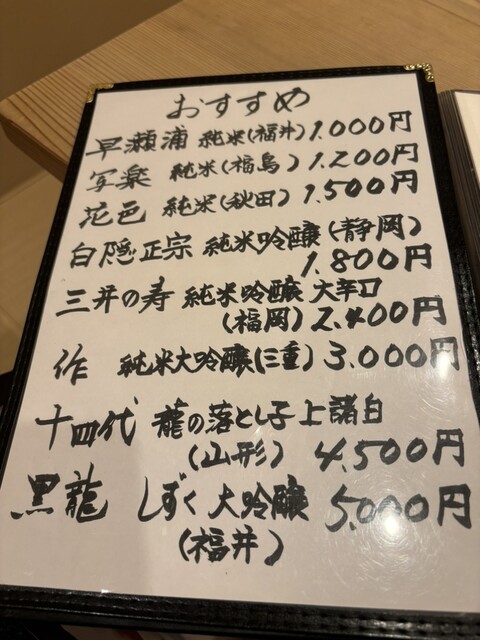 おすすめ
早瀬浦 純米(福井)1.000円
写楽 純米(福島)1.200円
花邑 純米(秋田)1.500円
白隠正宗 純米吟醸(静岡)
1.800円
三井の寿 純米吟醸 大辛口
(福岡)2.400円
作 純米大吟醸(三重)3.000円
十四代 龍の落とし子上諸白
(山形)4.500円
黒龍 しずく 大吟醸 5.000円
(福井)